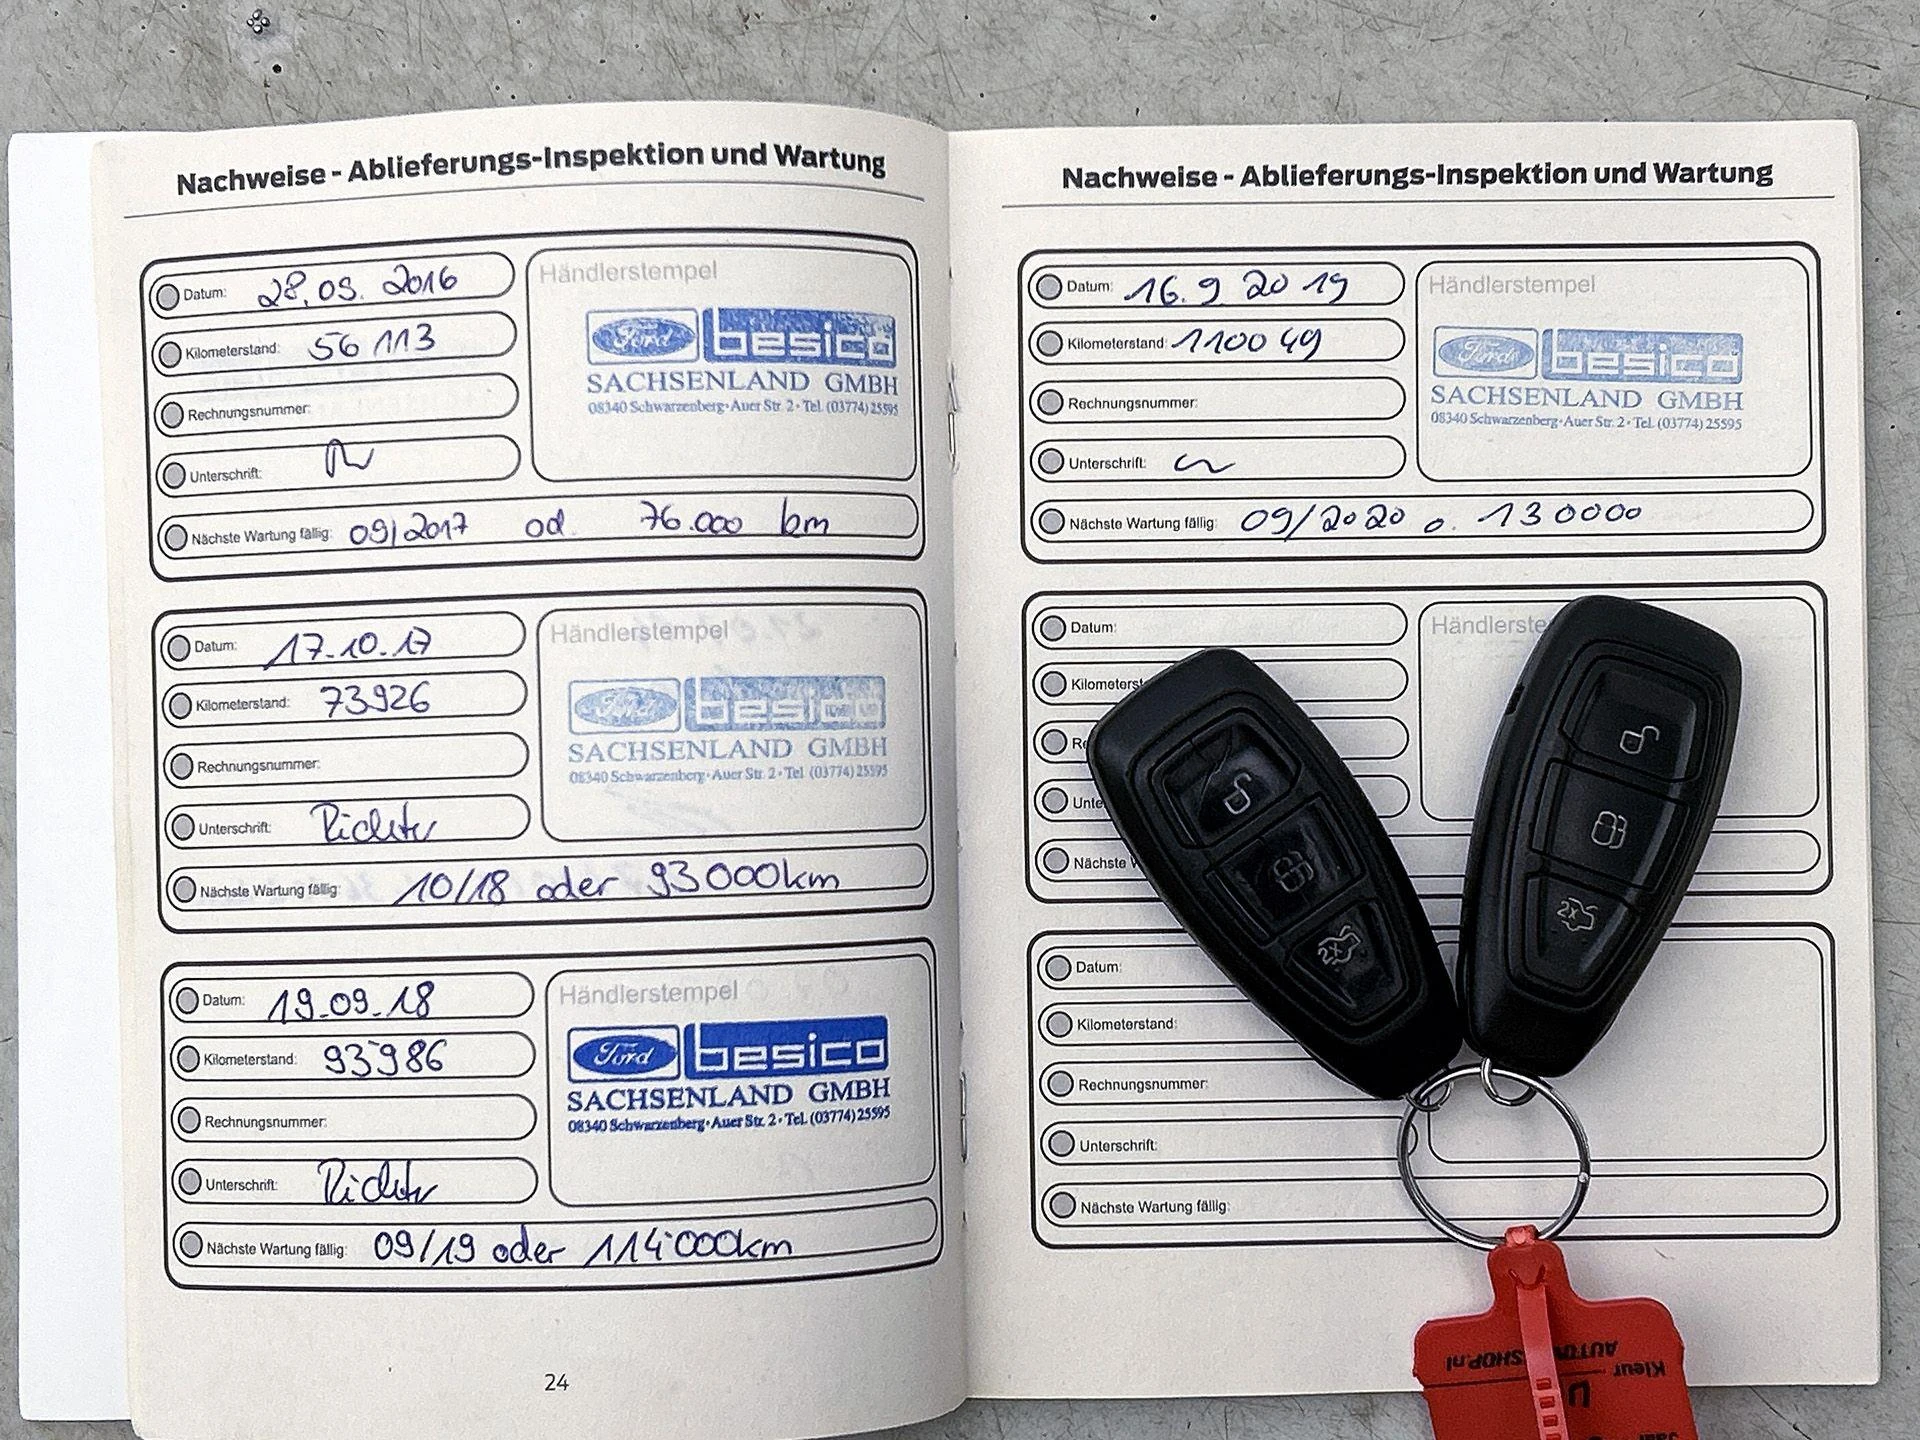 Nachweise - Ablieferungs-Inspektion und Wartung
Datum: 28.09.2016
Kilometerstand: 56 113
Rechnungsnummer:
Unterschrift:
Nächste Wartung fällig: 09/2017 od. 76.000 km
Händlerstempel
Ford besico
SACHSENLAND GMBH
08340 Schwarzenberg · Auer Str. 2 · Tel. (03774) 25595
Datum: 17.10.17
Kilometerstand: 73926
Rechnungsnummer:
Unterschrift: Richter
Nächste Wartung fällig: 10/18 oder 93000km
Händlerstempel
Ford besico
SACHSENLAND GMBH
08340 Schwarzenberg · Auer Str. 2 · Tel. (03774) 25595
Datum: 19.09.18
Kilometerstand: 93986
Rechnungsnummer:
Unterschrift: Richter
Nächste Wartung fällig: 09/19 oder 114.000km
Händlerstempel
Ford besico
SACHSENLAND GMBH
08340 Schwarzenberg · Auer Str. 2 · Tel. (03774) 25595
24
Nachweise - Ablieferungs-Inspektion und Wartung
Datum: 16.9 2019
Kilometerstand: 110049
Rechnungsnummer:
Unterschrift:
Nächste Wartung fällig: 09/2020 o. 130000
Händlerstempel
Ford besico
SACHSENLAND GMBH
08340 Schwarzenberg · Auer Str. 2 · Tel. (03774) 25595
Datum:
Kilometerst
Re
Unte
Nächste W
Händlerste
Datum:
Kilometerstand:
Rechnungsnummer:
Unterschrift:
Nächste Wartung fällig:
2x
2x
Kleur